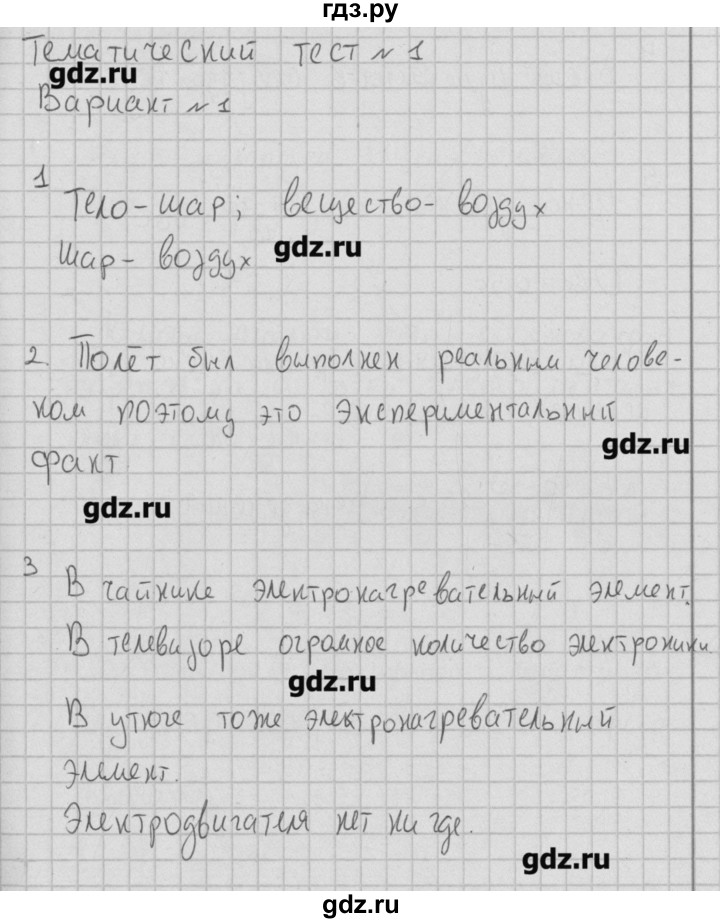 гдз.ру
Тематический тест № 1
gdz.ru
Вариант № 1
1
Тело - шар; вещество - воздух
Шар - воздух
gdz.ru
2. Полёт был выполнен реальным челове-
ком поэтому это экспериментальный
gdz.ru
факт
gdz.ru
3
В чайнике электронагревательный элемент.
В телевизоре огромное количество электроники
gdz.ru
В утюге тоже электронагревательный
элемент.
Электродвигателя нет ни где.
gdz.ru
gdz.ru